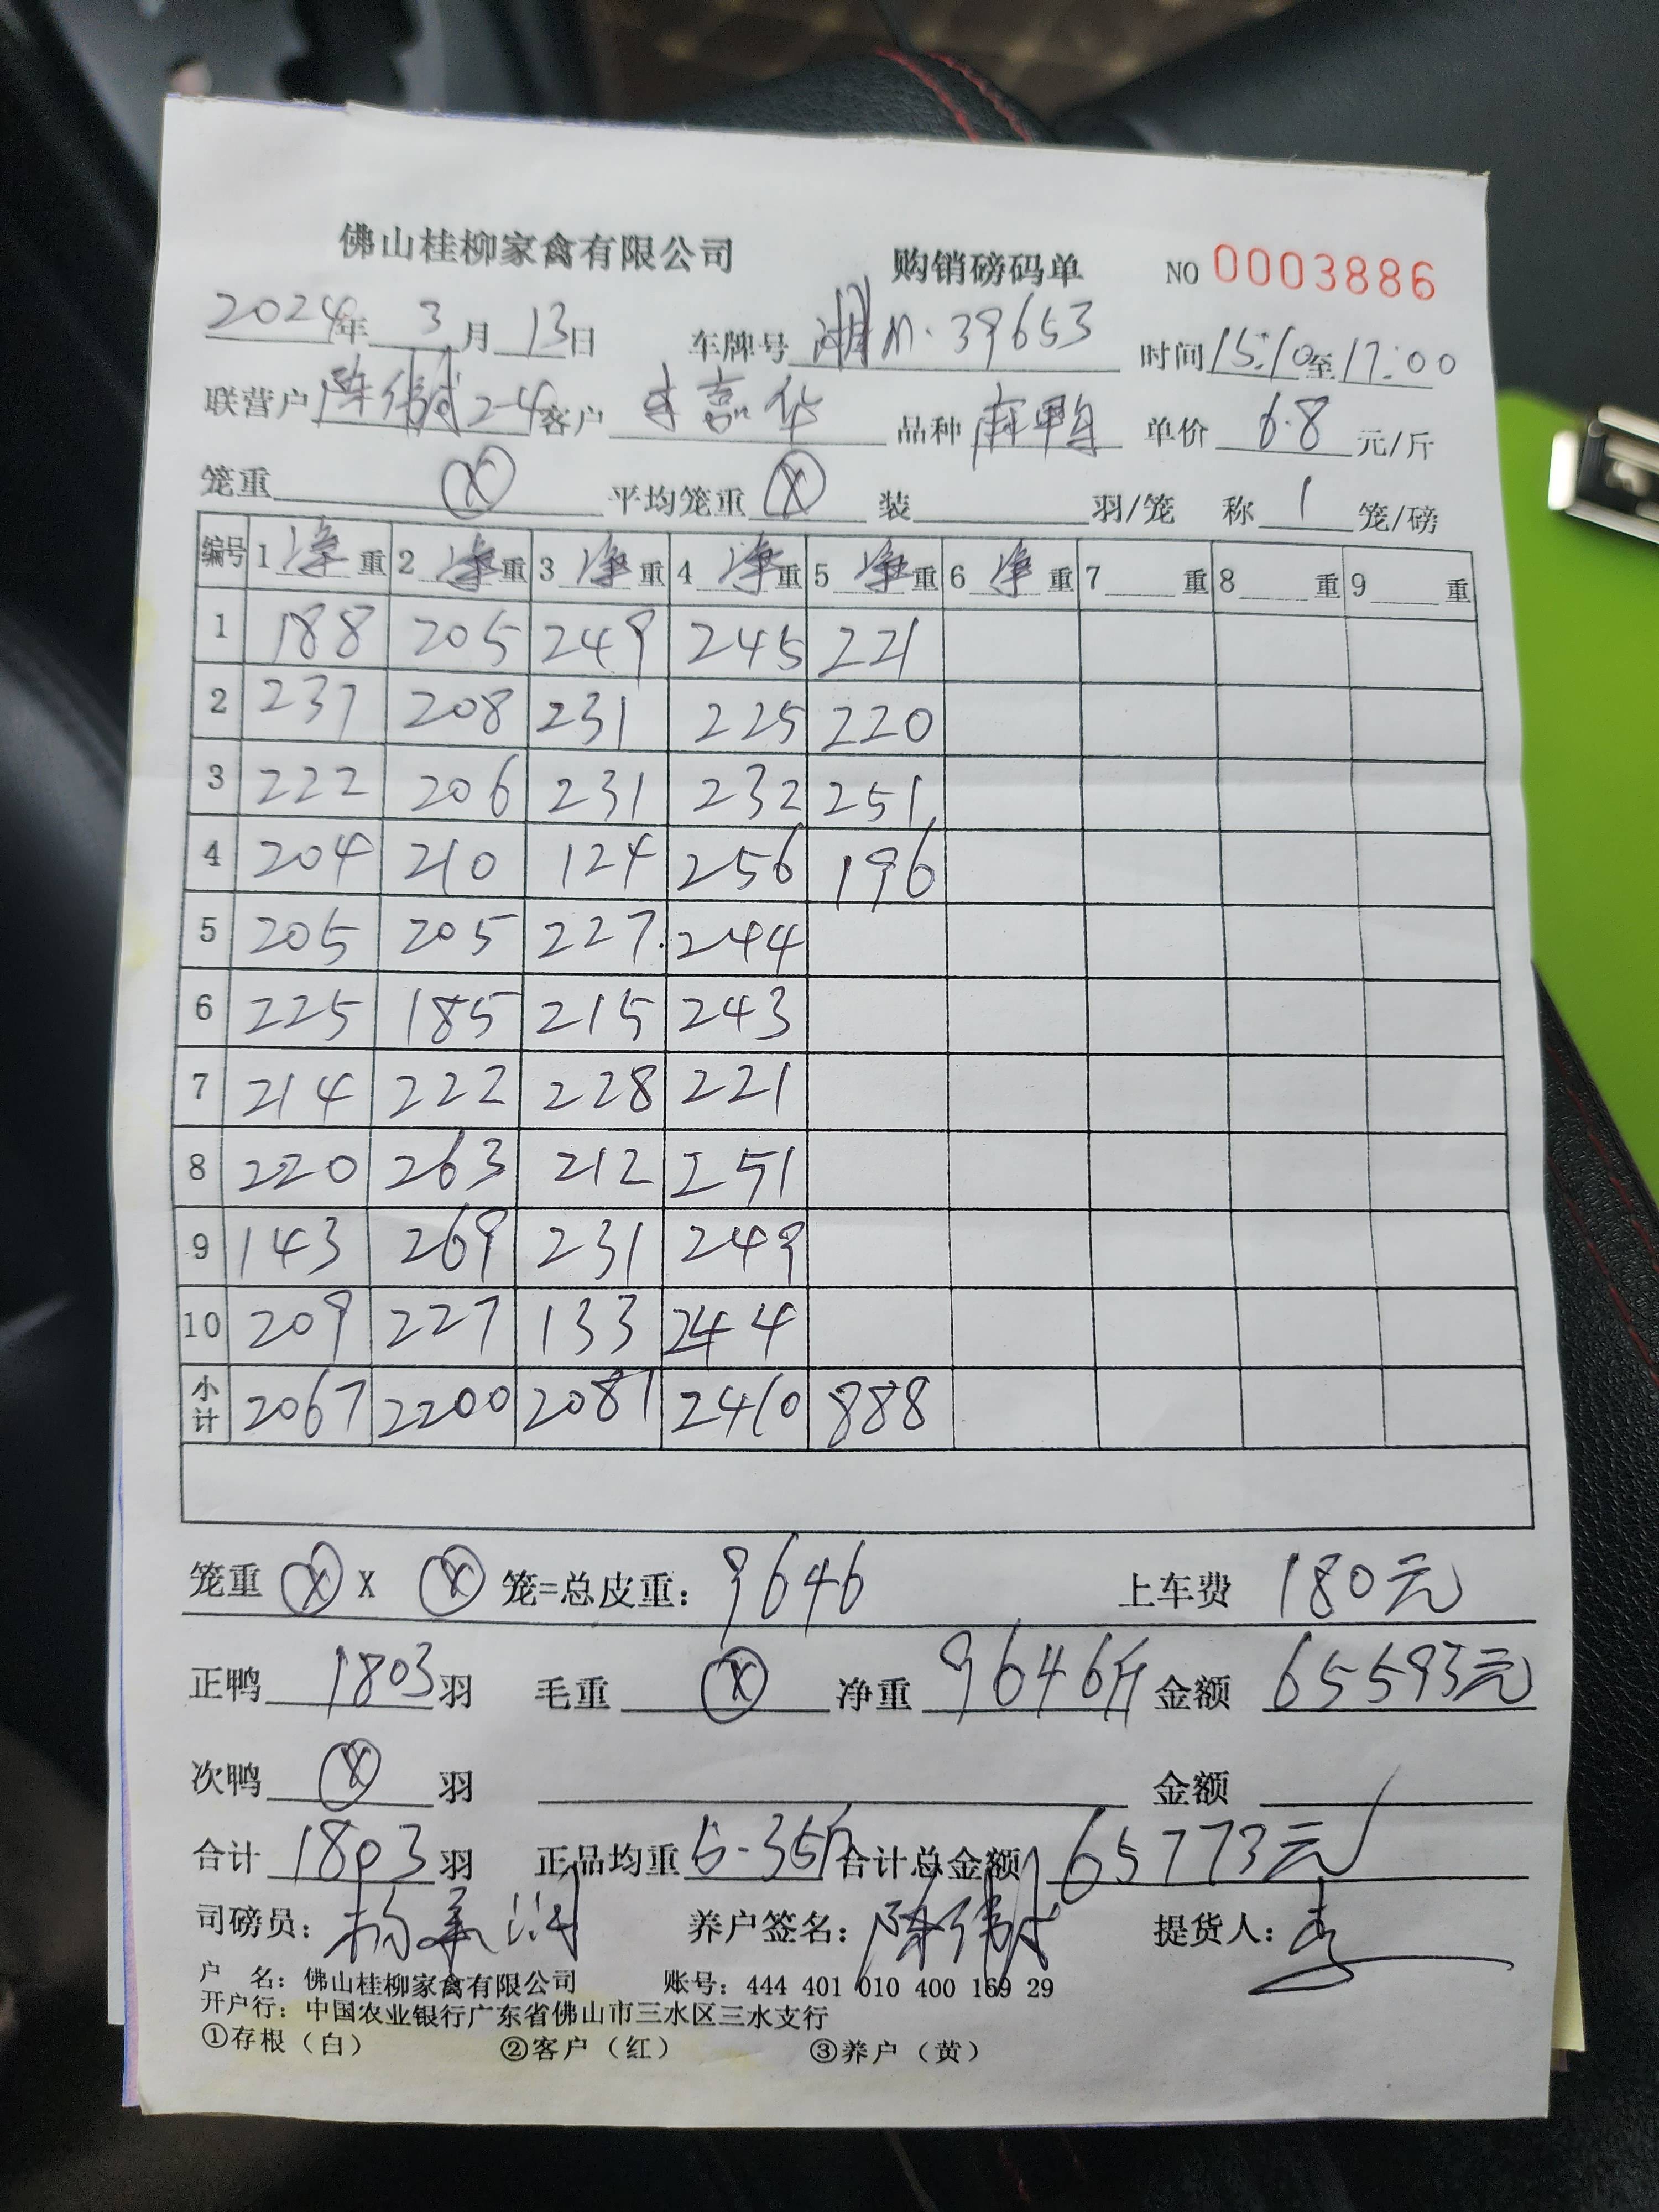 佛山桂柳家禽有限公司 购销磅码单 NO 0003886
2024年 3月 13日 车牌号 湘M·39653 时间 15:10至17:00
联营户 陈伟斌2-4 客户 李嘉华 品种 麻鸭 单价 6.8 元/斤
笼重 ⓧ 平均笼重 ⓧ 装 羽/笼 称 1 笼/磅
编号 1 净重 2 净重 3 净重 4 净重 5 净重 6 净重 7 重 8 重 9 重
1 188 205 249 245 221
2 237 208 231 225 220
3 222 206 231 232 251
4 204 210 124 256 196
5 205 205 227. 244
6 225 185 215 243
7 214 222 228 221
8 220 263 212 251
9 143 269 231 249
10 209 227 133 244
小计 2067 2200 2081 2410 888
笼重 ⓧ X ⓧ 笼=总皮重: 9646 上车费 180元
正鸭 1803 羽 毛重 ⓧ 净重 9646斤 金额 65593元
次鸭 ⓧ 羽 金额
合计 1803 羽 正品均重 5.35斤 合计总金额 65773元
司磅员: 养户签名: 陈伟斌 提货人: 李
户 名: 佛山桂柳家禽有限公司 账号: 444 401 010 400 169 29
开户行: 中国农业银行广东省佛山市三水区三水支行
①存根（白） ②客户（红） ③养户（黄）